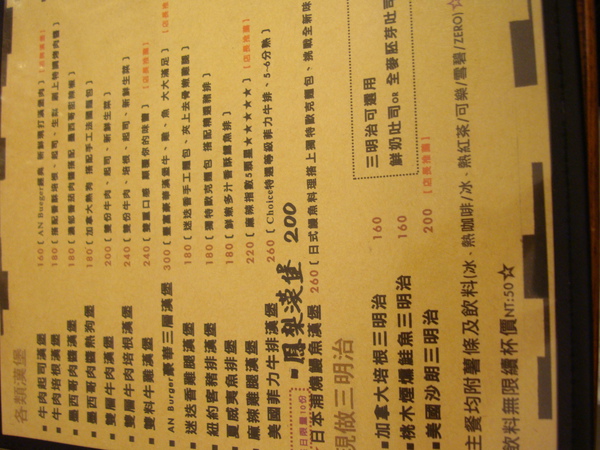 各類漢堡
▪牛肉起司漢堡 160〔AN Burger經典
▪牛肉培根漢堡 180
▪墨西哥肉醬漢堡 180
▪墨西哥肉醬熱狗堡 180〔加拿大熱狗 搭配手工法國麵包〕
▪雙層牛肉漢堡 200〔雙份牛肉、起司、新鮮生菜〕
▪雙層牛肉培根漢堡 240〔雙份牛肉、培根、起司、新鮮生菜〕
▪雙料牛雞漢堡 240〔雙重口感 顛覆你的味蕾〕〔店長推薦〕
▪AN Burger豪華三層漢堡 300〔豐富豪華滿堡牛、雞、魚 大大滿足〕〔店長推薦〕
▪迷迭香雞腿漢堡 180〔迷迭香手工麵包、夾上去骨嫩雞腿〕
▪紐約客豬排漢堡 180〔獨特歐克麵包 搭配精選豬排〕
▪夏威夷魚排堡 180〔鮮嫩多汁香酥鱈魚排〕
▪麻辣雞腿漢堡 220〔麻辣指數5顆星★★★★★〕〔店長推薦〕
美國菲力牛排漢堡 260〔Choice特選等級菲力牛排、5-6分熟〕
▪鳳梨漢堡 200
日限量10份
日本蒲燒鰻魚漢堡 260〔日式鰻魚料理搭上獨特歐克麵包、挑戰全新味
現做三明治
三明治可選用
鮮奶吐司OR 全麥胚芽吐司
▪加拿大培根三明治 160
▪桃木煙燻鮭魚三明治 160
▪美國沙朗三明治 200〔店長推薦〕
主餐均附薯條及飲料(冰、熱咖啡/冰、熱紅茶/可樂/雪碧/ZERO)☆
飲料無限續杯價NT:50☆